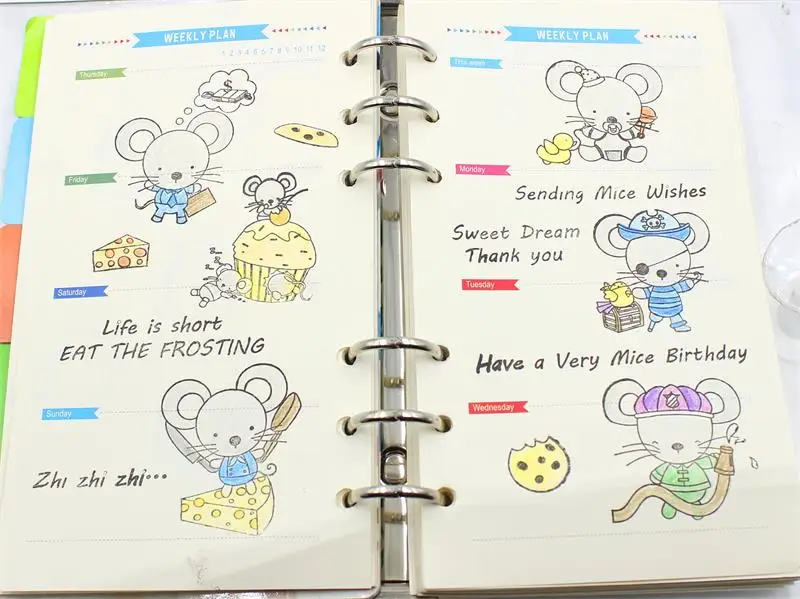 WEEKLY PLAN
1 2 3 4 5 6 7 8 9 10 11 12
Thursday
$
Friday
Z Z Z
Saturday
Life is short
EAT THE FROSTING
Sunday
Zhi zhi zhi...
WEEKLY PLAN
This week
Monday
Sending Mice Wishes
Sweet Dream
Thank you
Tuesday
Have a Very Mice Birthday
Wednesday